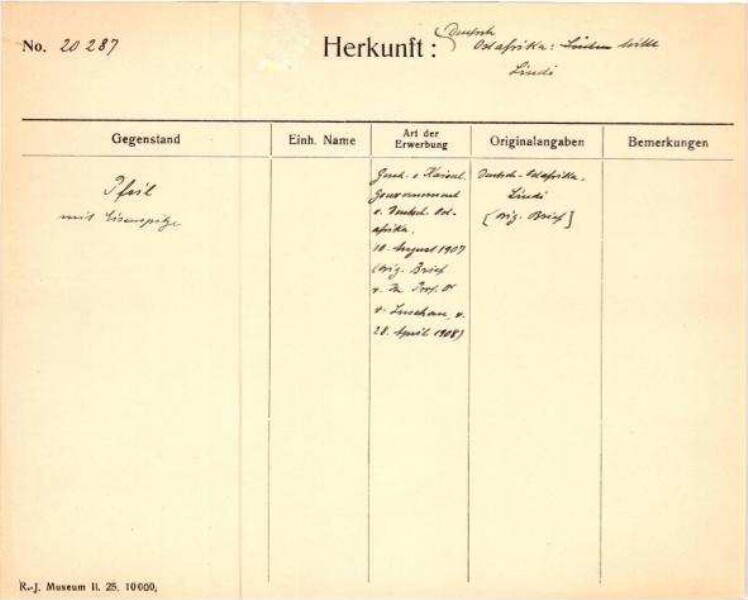 No. 20 287
Herkunft: Deutsch
Ostafrika:
Lindi
Gegenstand
Einh. Name
Art der
Erwerbung
Originalangaben
Bemerkungen
Pfeil
mit Eisenspitze
Gesch. v. Kaiserl.
Gouvernement
v. Deutsch-Ost-
afrika.
10. August 1907
(orig. Brief
v. Prof. Dr
v. Luschan v.
28. April 1908)
Deutsch-Ostafrika.
Lindi
[orig. Brief]
R.-J. Museum II. 25. 10000.